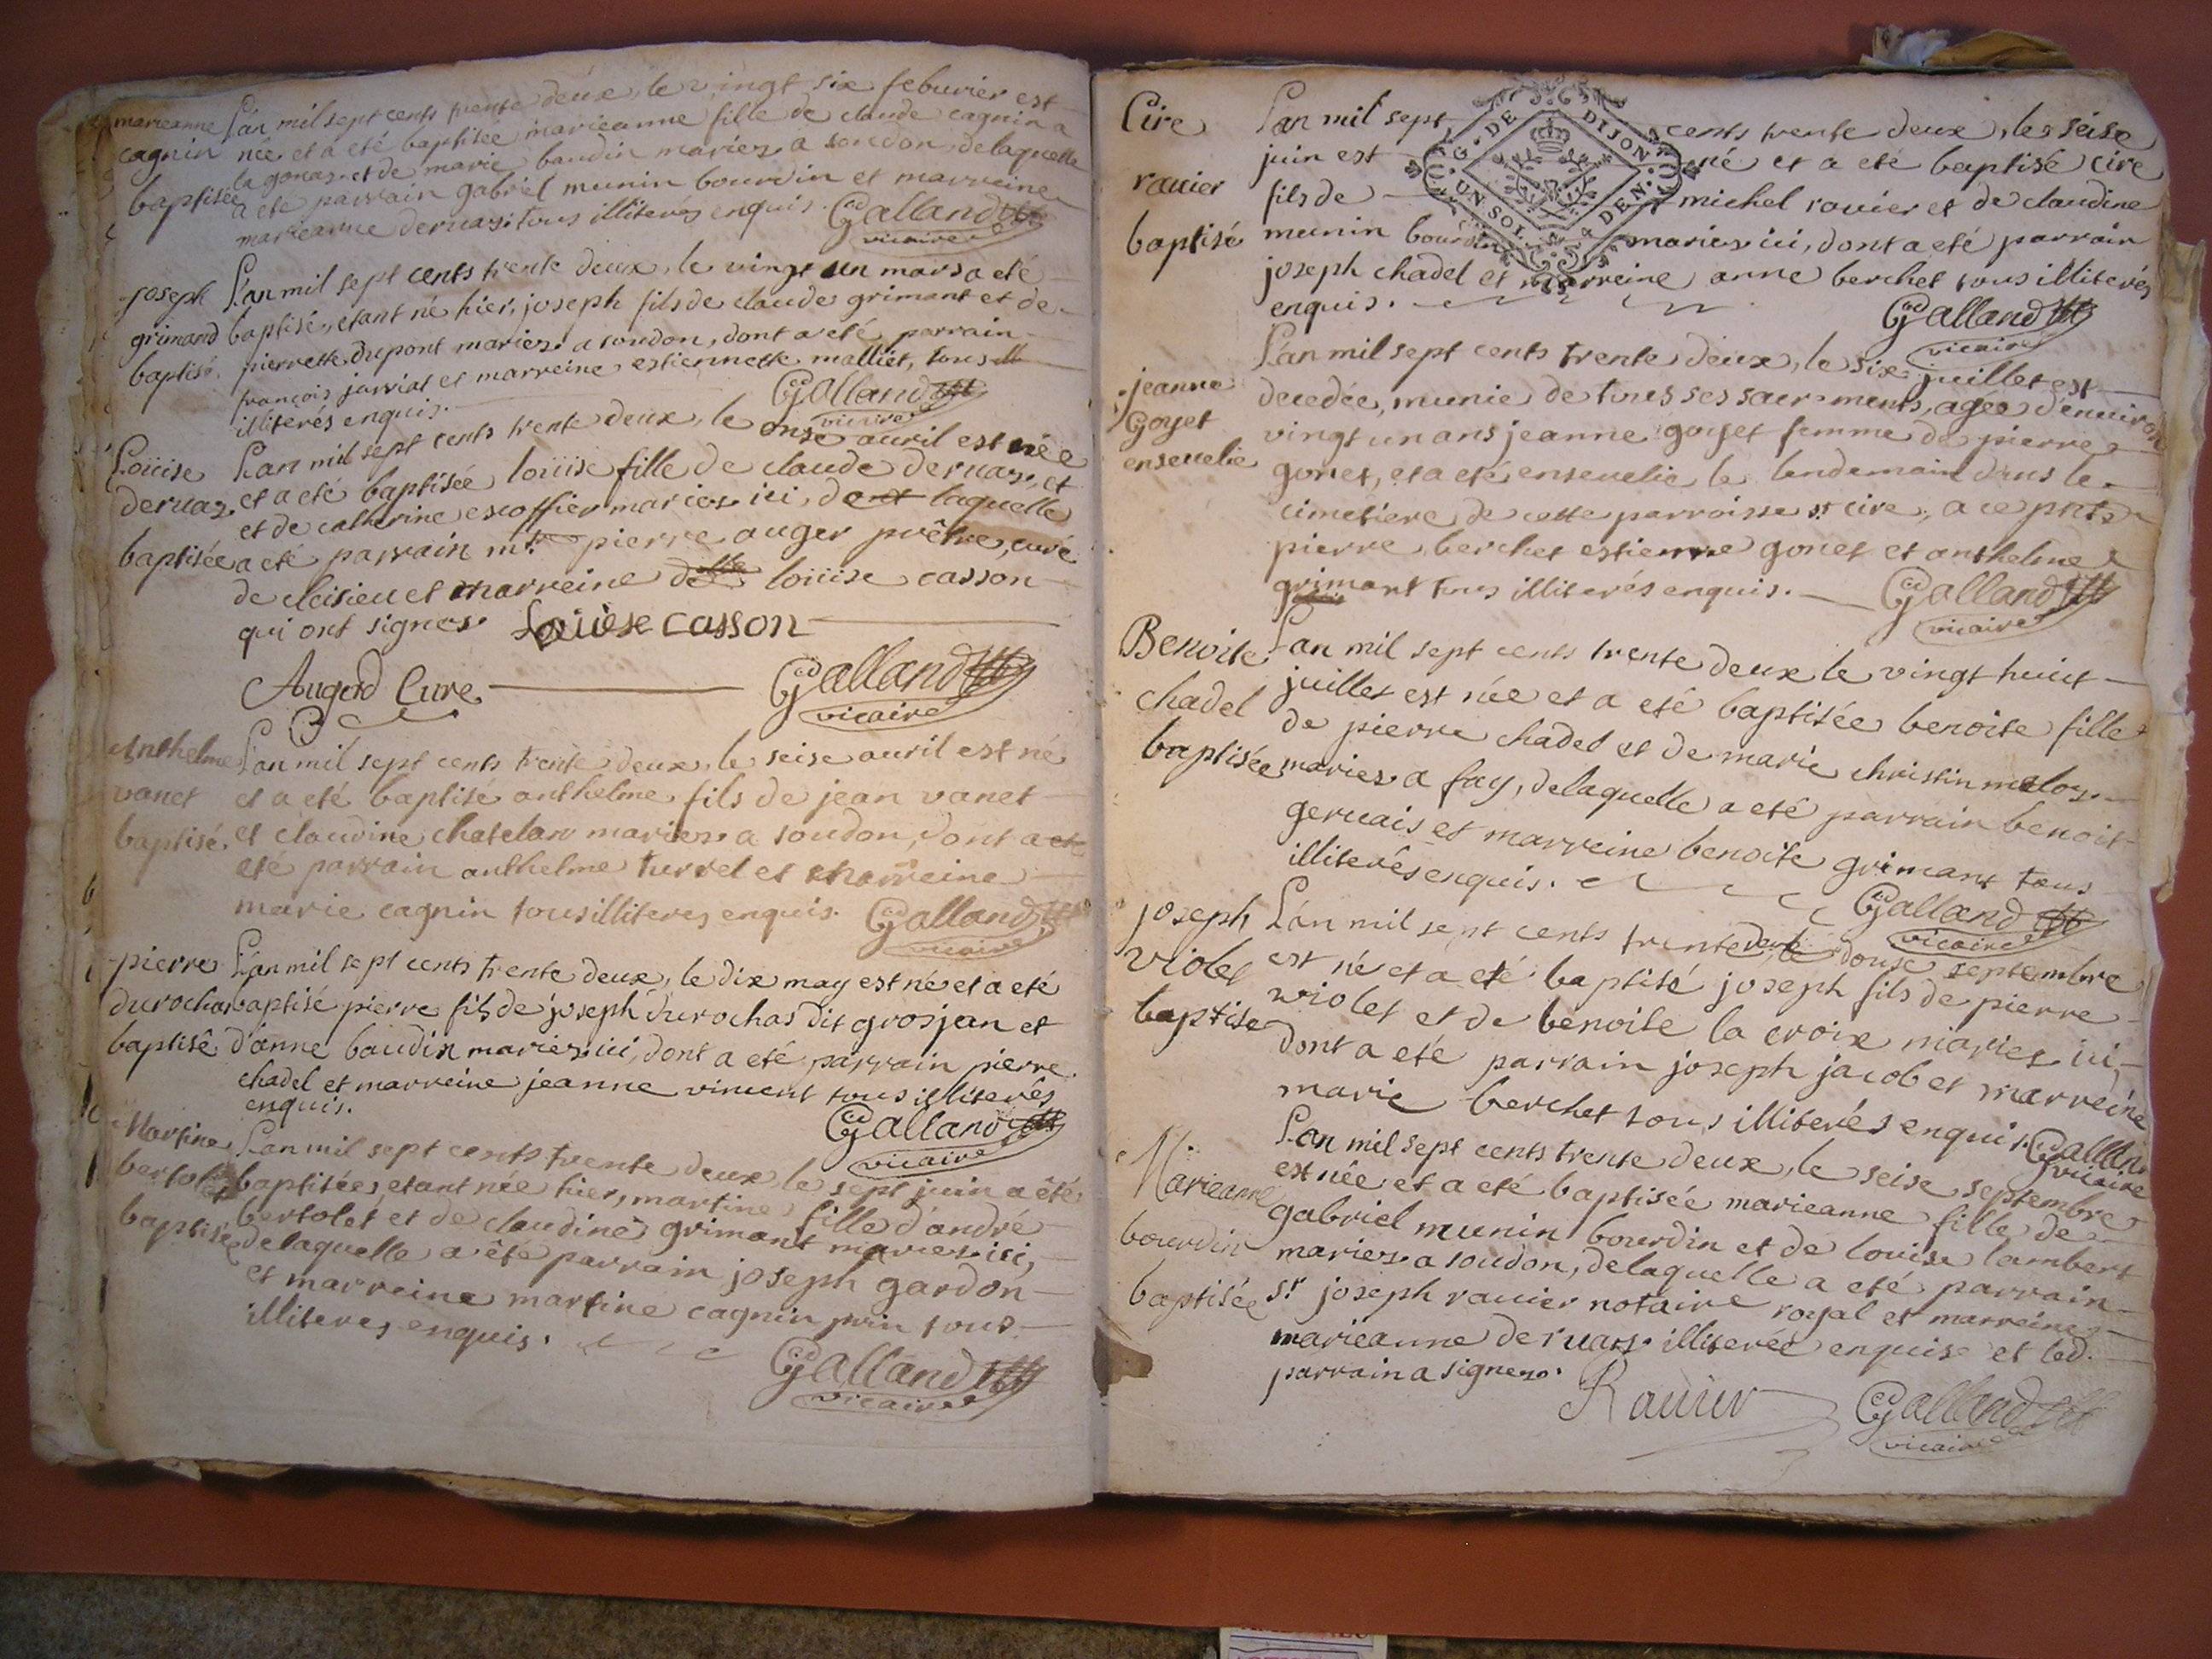 marieanne L'an mil sept cents trente deux, le vingt six feburier est
cagnin née et a eté baptisée marieanne fille de claude cagnin a
la gonas et de marie baudin mariez a soudon, delaquelle
baptisée a eté parrain gabriel munin bourdin et marreine
marieanne deruaz tous illiterés enquis. Galland
vicaire
joseph L'an mil sept cents trente deux, le vingt un mars a eté
grimand baptisé, etant né hier, joseph fils de claude grimant et de
baptisé. pierrette dupont mariez a soudon, dont a eté parrain
françois jarriat et marreine estiennette malliet, tous
illiterés enquis. Galland
vicaire
Loüise L'an mil sept cents trente deux, le onse auril est née
deruaz et a eté baptisée loüise fille de claude deruaz, et
et de catherine escoffier mariez ici, de laquelle
baptisée a eté parrain mr. pierre auger prêtre, curé
de cleisieu et marreine dlle loüise casson
qui ont signez. Loüise casson
Augerd Curé. Galland
vicaire
Anthelme L'an mil sept cents trente deux, le seise auril est né
vanet et a eté baptisé anthelme fils de jean vanet
baptisé. et claudine chatelan mariez a soudon, dont a
eté parrain anthelme turrel et marreine
marie cagnin tous illiterez enquis. Galland
vicaire
pierre L'an mil sept cents trente deux, le dix may est né et a eté
durochas baptisé pierre fils de joseph durochas dit grosjean et
baptisé d'anne baudin mariez ici, dont a eté parrain pierre
chadel et marreine jeanne vincent tous illiterés
enquis. Galland
vicaire
Martine L'an mil sept cents trente deux, le sept juin a êté
bertolet baptisée, etant née hier, martine fille d'andré
bertolet et de claudine grimant mariez ici,
baptisée delaquelle a êté parrain joseph gardon
et marreine martine cagnin tous
illiterez enquis. Galland
vicaire
G. DE DIJON
UN SOL 4 DEN.
Cire L'an mil sept cents trente deux, le seise
juin est né et a eté baptisé cire
rauier fils de michel rouier et de claudine
baptisé munin bourdin mariez ici, dont a eté parrain
joseph chadel et marreine anne berchet tous illiterés
enquis. Galland
vicaire
L'an mil sept cents trente deux, le six juillet est
jeanne decedée, munie de tous ses sacrements, agée d'enuiron
Goyet vingt un ans jeanne goyet femme de pierre
enseuelie gonet, et a eté enseuelie le lendemain dans le
cimetiere de cette parroisse st cire, a ce pnts
pierre berchet estienne gonet et anthelme
grimant tous illiterés enquis. Galland
vicaire
Benoite L'an mil sept cents trente deux le vingt huict
chadel juillet est née et a eté baptisée benoite fille
de pierre chadel et de marie christin meloz
baptisée mariez a fay, delaquelle a eté parrain benoit
geruais et marreine benoite grimant tous
illiterés enquis. Galland
vicaire
joseph L'an mil sept cents trente deux, le douse septembre
violet est né et a eté baptisé joseph fils de pierre
baptisé violet et de benoite la croix mariez ici,
dont a eté parrain joseph jacob et marreine
marie berchet tous illiterés enquis. Galland
vicaire
L'an mil sept cents trente deux, le seise septembre
Marieanne est née et a eté baptisée marieanne fille de
bourdin gabriel munin bourdin et de louise lambert
mariez a soudon, delaquelle a eté parrain
baptisée sr. joseph rauier notaire royal et marreine
marieanne deruaz illiterée enquise et led.
parrain a signez.
Rauier Galland
vicaire